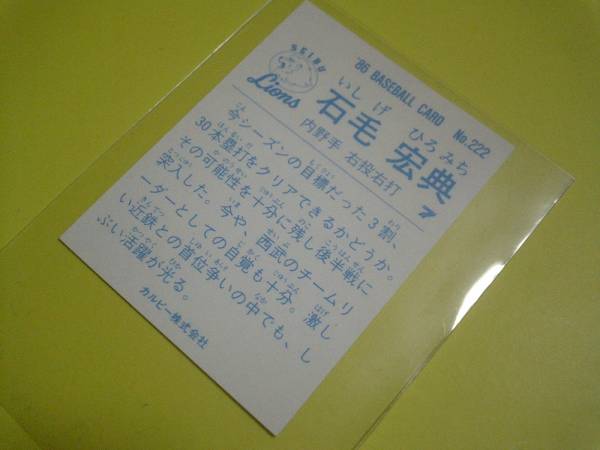 SEIBU
Lions
'86 BASEBALL CARD No.222
いし げ ひろ みち
石毛 宏典 7
内野手 右投右打
今シーズンの目標だった3割、
30本塁打をクリアできるかどうか。
その可能性を十分に残し後半戦に
突入した。今や、西武のチームリ
ーダーとしての自覚も十分。激し
い近鉄との首位争いの中でも、し
ぶい活躍が光る。
カルビー株式会社